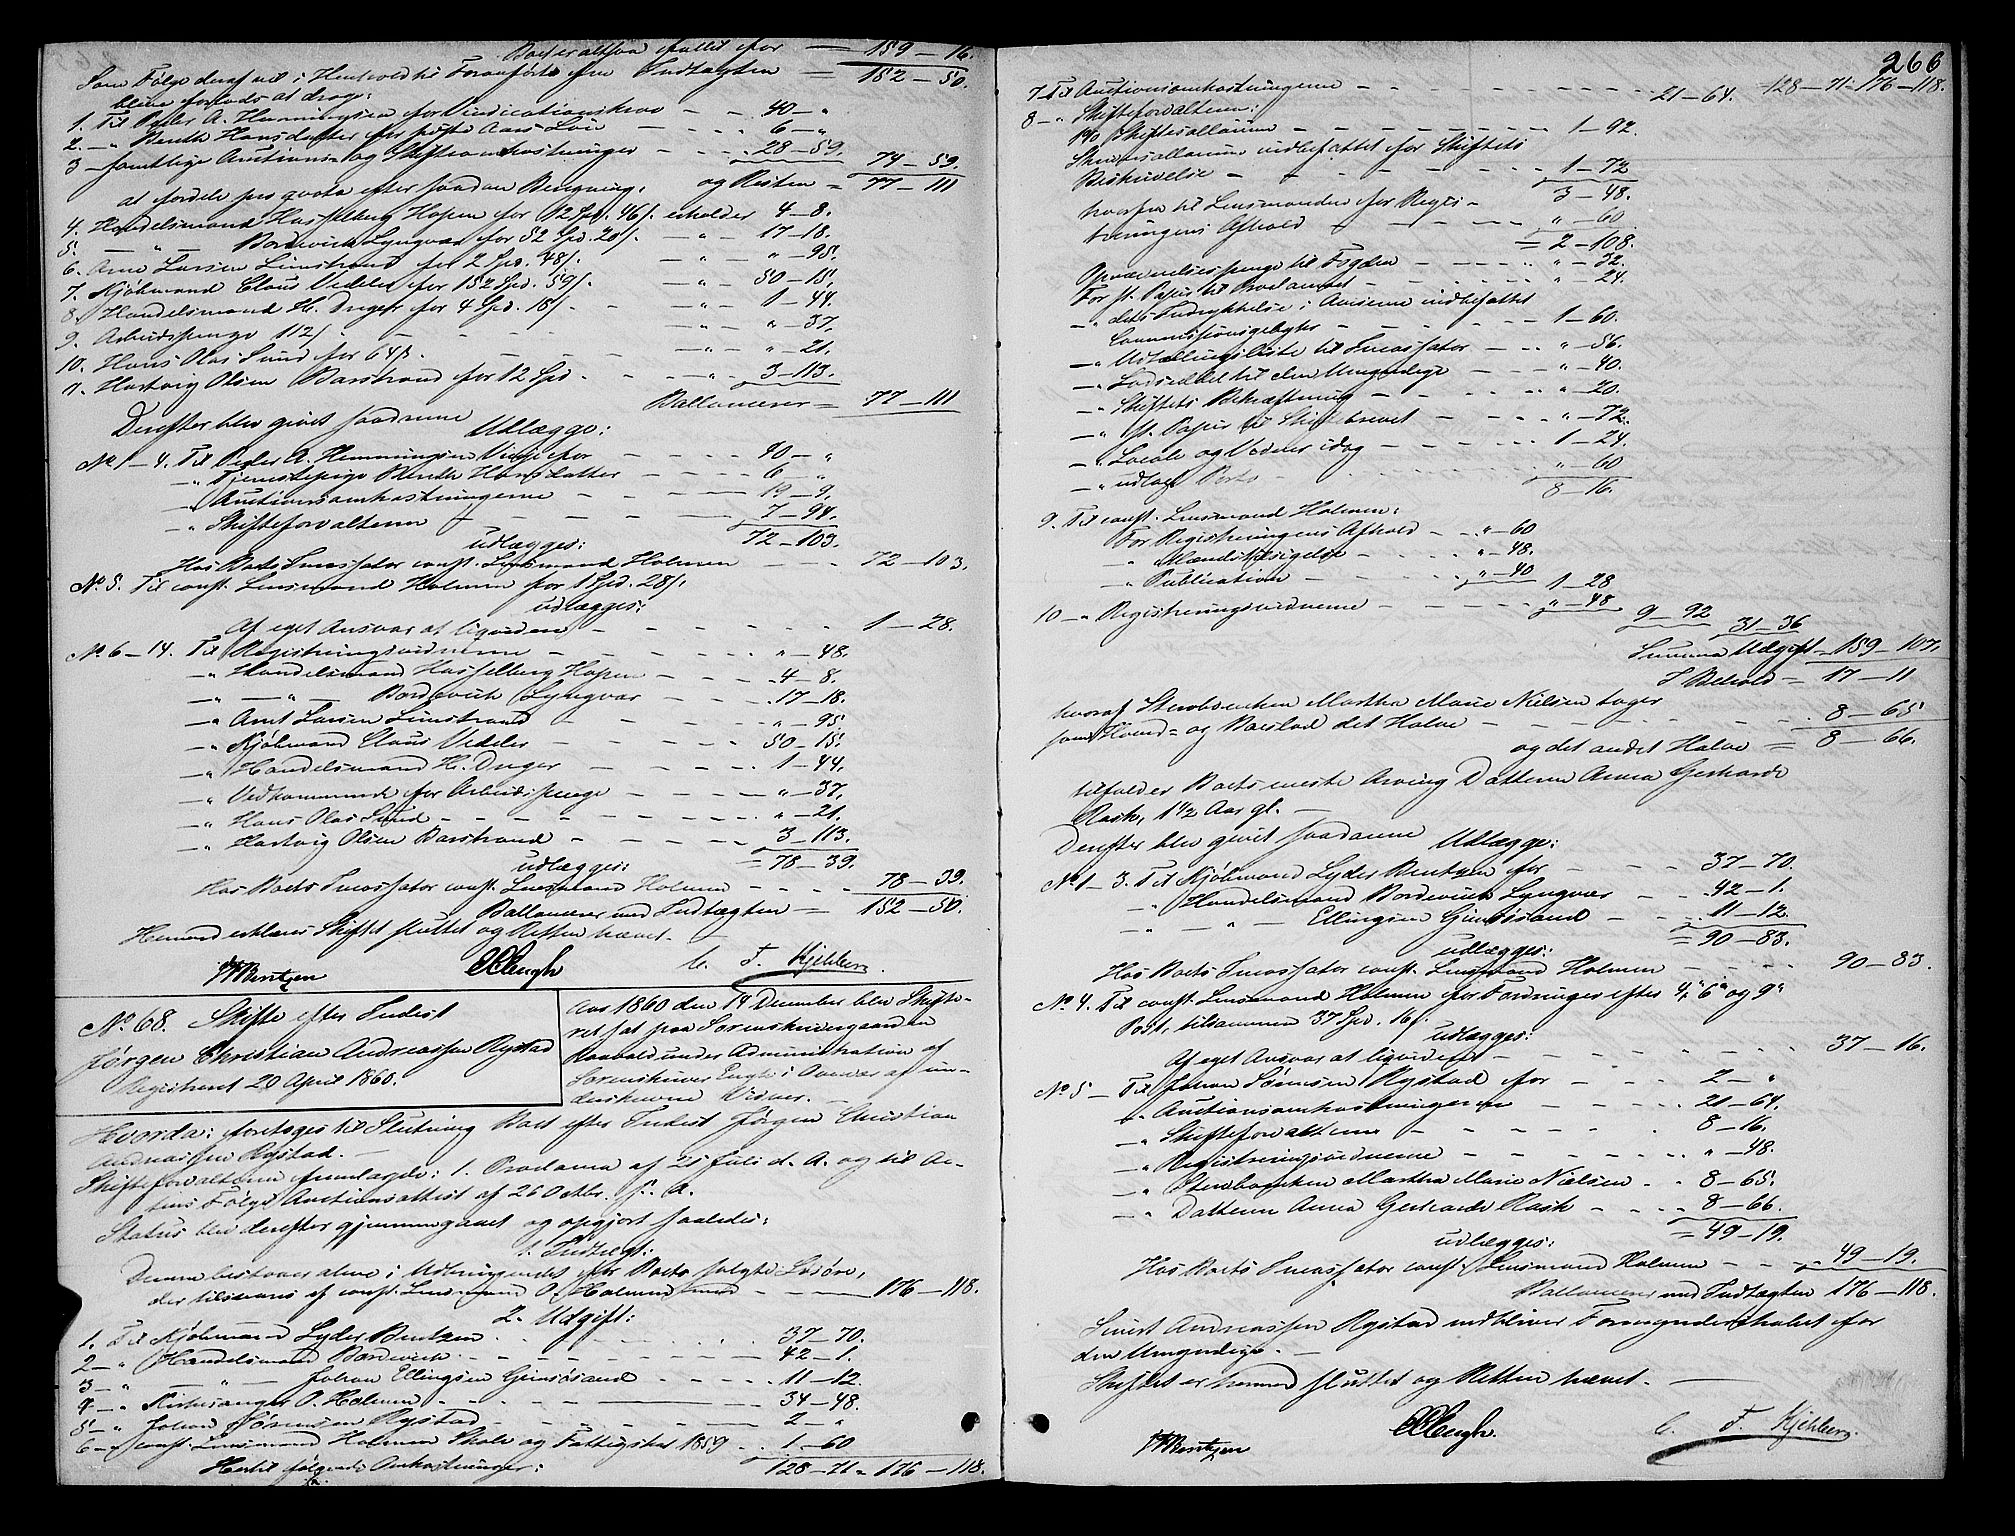 Boet er altsaa fallit for — = 159 – 16.
Som Følge deraf vil i Henhold til Foranførte efter Indtægten — = 152 – 50.
blive forlods at drage:
1. Til Peder A. Hemmingsen for Vindicationskrav — 40 – "
2. — " Benth Hansdatter for sidste Aars Løn — 6 – "
3 — samtlige Auctions- og Skifteomkostninger — 28 – 59. 74 – 59.
og Resten = 77 – 111
at fordele pro qvota efter saadan Beregning:
4. Handelsmand Hasselberg Hopen for 12 Spd. 46 s. erholder 4 – 8.
5. — " — Bordevick Lyngvær for 52 Spd. 20 s. — " — 17 – 18.
6. Arnt Larsen Limstrand for 2 Spd. 48 s. — " — " – 95.
7. Kjøbmand Claus Vedeler for 152 Spd. 59 s. — " — 50 – 15.
8. Handelsmand H. Dreyer for 4 Spd. 18 s. — " — 1 – 44.
9. Arbeidspenge 112 s. — " — " – 37.
10. Hans Olai Sund for 64 s. — " — " – 21.
11. Hartvig Olsen Barstrand for 12 Spd. — " — 3 – 113.
Ballancerer = 77 – 111
Derefter blev givet saadanne
Udlægge:
No 1 – 4. Til Peder A. Hemmingsen Vinje for — 40 – "
— " Tjenestepige Benth Hansdatter — 6 – "
— " Auctionsomkostningerne — 19 – 9.
— " Skifteforvalteren — 7 – 94.
udlægges: 72 – 103.
Hos Boets Incassator const. Lensmand Holmen — 72 – 103.
No 5. Til const. Lensmand Holmen for 1 Spd. 28 s.
udlægges:
Af eget Ansvar at liqvidere — 1 – 28.
No 6 – 14. Til Registreringsvidnerne — " – 48.
— " Handelsmand Hasselberg Hopen — 4 – 8.
— " — " — Bordevick Lyngvær — 17 – 18.
— " Arnt Larsen Limstrand — " – 95.
— " Kjøbmand Claus Vedeler — 50 – 15.
— " Handelsmand H. Dreyer — 1 – 44.
— " Vedkommende for Arbeidspenge — " – 37.
— " Hans Olai Sund — " – 21.
— " Hartvig Olsen Barstrand — 3 – 113.
udlægges: = 78 – 39.
Hos Boets Incassator const. Lensmand Holmen — 78 – 39.
Ballancerer med Indtægten = 152 – 50.
Hermed erklæres Skiftet sluttet og Retten hævet. —
Bentzen Engh C. F. Kjeldberg.
No 68. Skifte efter Inderst
Jørgen Christian Andreassen Rystad
Registreret 20 April 1860.
Aar 1860 den 14 December blev Skifte-
ret sat paa Sorenskrivergaarden
under Administration af
Sorenskriver Engh i Overvær af un-
derskrevne Vidner. —
Hvorda: foretoges til Slutning Boet efter Inderst Jørgen Christian
Andreassen Rystad. —
Skifteforvalteren fremlagde: 1. Proclama af 25 Juli d. A. og til Ac-
tens Følge Auctionsattest af 26 Octbr. s. A.
Status blev derefter gjennemgaaet og opgjort saaledes:
1. Indtægt:
Denne bestaaer alene i Udbringendet for Boets solgte Løsøre,
der tilsvares af const. Lensmand O. Holmen med — 176 – 118.
2. Udgift:
1. Til Kjøbmand Lyder Bentzen — 37 – 70.
2 — " Handelsmand Bordevick — 42 – 1.
3 — " — " — Johan Ellingsen Gimsøsand — 11 – 12.
4 — " Kirkesanger O. Holmen — 34 – 48.
5 — " Johan Sørensen Rystad — 2 – "
6 — " const. Lensmand Holmen Skole og Fattigskat 1859 — 1 – 60
Hertil følgende Omkostninger: 128 – 71 = 176 – 118.
266
7 Til Auctionsomkostningerne — 21 – 64. 128 – 71 = 176 – 118.
8 — " Skifteforvalteren:
Skiftesallarium — 1 – 92.
Skriversallarium indbefattet for Skiftets
Beskrivelse — 1 – 72
3 – 48.
hvorfra til Lensmanden for Regis-
treringens Afhold — " – 60
= 2 – 108.
Oprævnelsespenge til Fogden — " – 32.
For st. Papir til Proclamaet — " – 24.
— " dets Indrykkelse i Aviserne indbefattet
Commissionsgebyhr — 1 – 60.
— " Udtællingsliste til Incassator — " – 56.
— " Lodseddel til den Umyndige — " – 40.
— " Skiftets Bekræftning — " – 20.
— " st. Papir til Skiftebrevet — " – 72.
— " Locale og Vidner idag — 1 – 24.
— " udlagt Porto — " – 60
8 – 16.
9. Til const. Lensmand Holmen:
For Registreringens Afhold — " – 60
— " Mændstilsigelse — " – 48.
— " Publication — " – 40
1 – 28
10 — " Registreringsvidnerne — " – 48
9 – 92 31 – 36
Summa Udgift = 159 – 107.
I Behold = 17 – 11
hvoraf Stervboenken Martha Marie Nielsen tager
som Hoved- og Boeslod det Halve — 8 – 65
og det andet Halve = 8 – 66.
tilfalder Boets eneste Arving Datteren Anna Gerharde
Rask, 1 1/2 Aar gl. —
Derefter blev givet saadanne
Udlægge:
No 1 – 3. Til Kjøbmand Lyder Bentzen for — 37 – 70.
— " Handelsmand Bordevick Lyngvær — 42 – 1.
— " — " — Ellingsen Gimsøsand — 11 – 12.
= 90 – 83.
udlægges:
Hos Boets Incassator const. Lensmand Holmen — 90 – 83.
No 4. Til const. Lensmand Holmen for Fordringer efter 4, 6 og 9
Post, tilsammen 37 Spd. 16 s.
udlægges:
Af eget Ansvar at liqvidere — 37 – 16.
No 5 — Til Johan Sørensen Rystad for — 2 – "
— " Auctionsomkostningerne — 21 – 64.
— " Skifteforvalteren — 8 – 16.
— " Registreringsvidnerne — " – 48.
— " Stervboenken Martha Marie Nielsen — 8 – 65.
— " Datteren Anna Gerharde Rask — 8 – 66.
= 49 – 19.
udlægges:
Hos Boets Incassator const. Lensmand Holmen — 49 – 19.
Ballancerer med Indtægten 176 – 118.
Andreassen Rystad indbliver Formynderskabet for
den Umyndige. —
Skiftet er hermed sluttet og Retten hævet. —
Bentzen Engh. C. F. Kjeldberg.